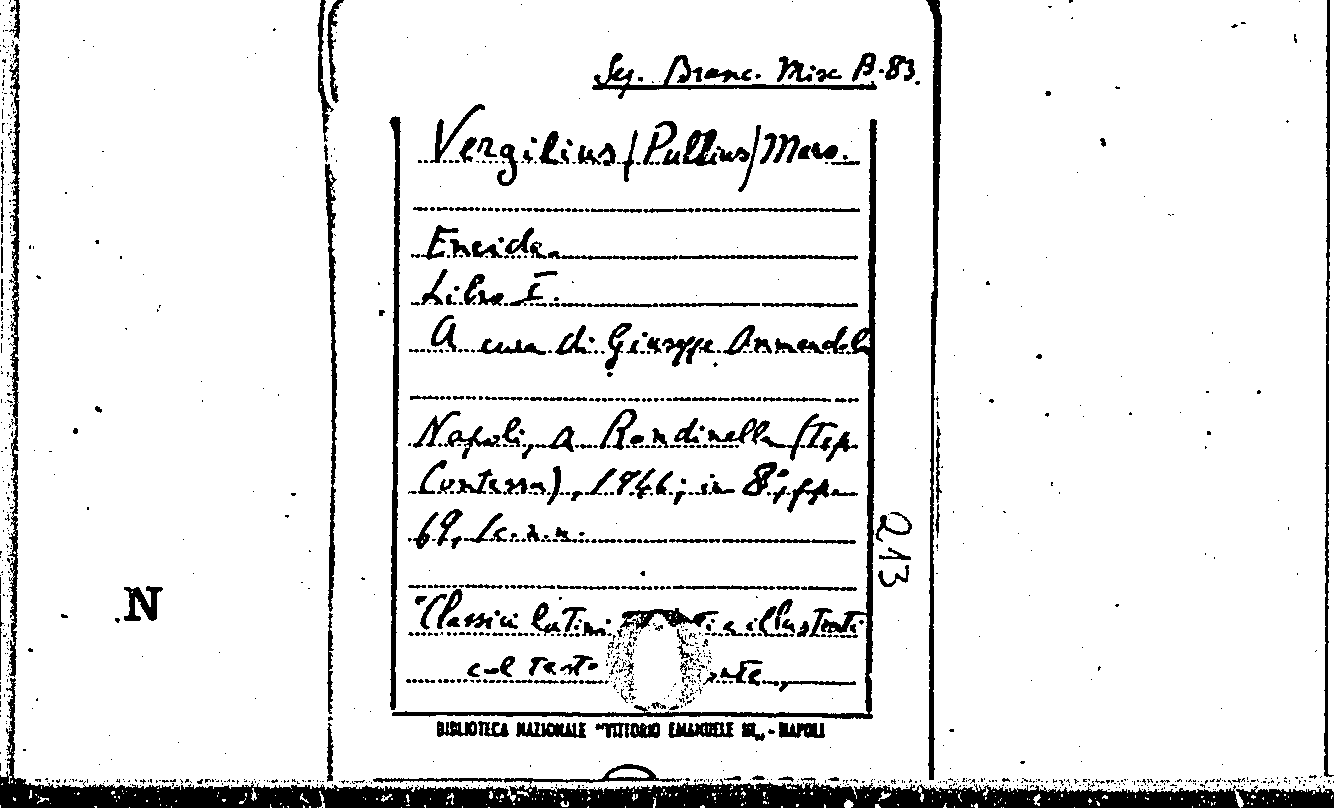 Sez. Branc. Misc B.83.
Vergilius (Publius) Maro.
Eneide.
Libro I.
A cura di Giuseppe Ammendola
Napoli, A Rondinella (Tip.
Contessa), 1946; in 8°, pp.
69, 1 c.n.n.
Q13
N
"Classici latini illustrati
col testo
BIBLIOTECA NAZIONALE "VITTORIO EMANUELE III„ - NAPOLI